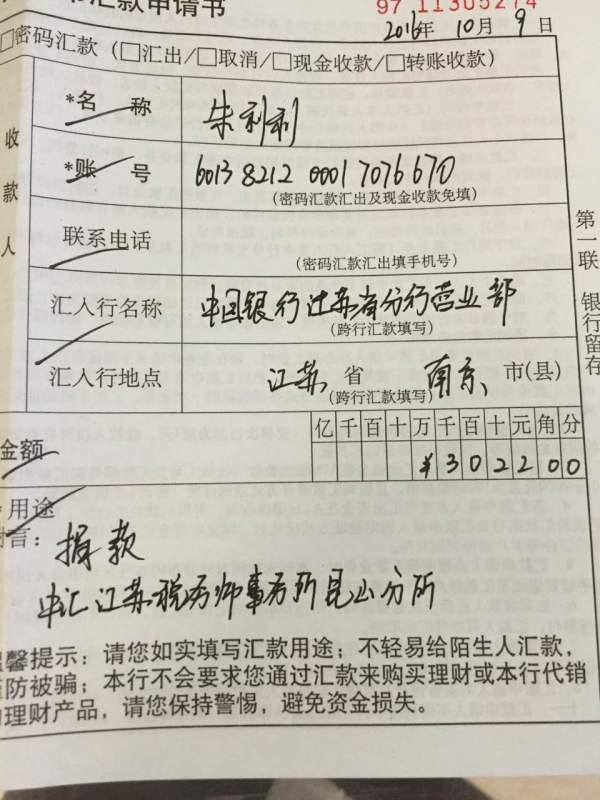 汇款申请书
97 11305274
2016年 10月 9日
□密码汇款（□汇出/□取消/□现金收款/□转账收款）
收款人
*名 称 朱利利
*账 号 6013 8212 0001 7076670
(密码汇款汇出及现金收款免填)
联系电话
(密码汇款汇出填手机号)
汇入行名称 中国银行江苏省分行营业部
(跨行汇款填写)
汇入行地点 江苏 省 南京 市(县)
(跨行汇款填写)
金额 亿千百十万千百十元角分
¥302200
*用途
附言： 捐款
中汇江苏税务师事务所昆山分所
温馨提示：请您如实填写汇款用途；不轻易给陌生人汇款，
谨防被骗；本行不会要求您通过汇款来购买理财或本行代销
的理财产品，请您保持警惕，避免资金损失。
第一联 银行留存